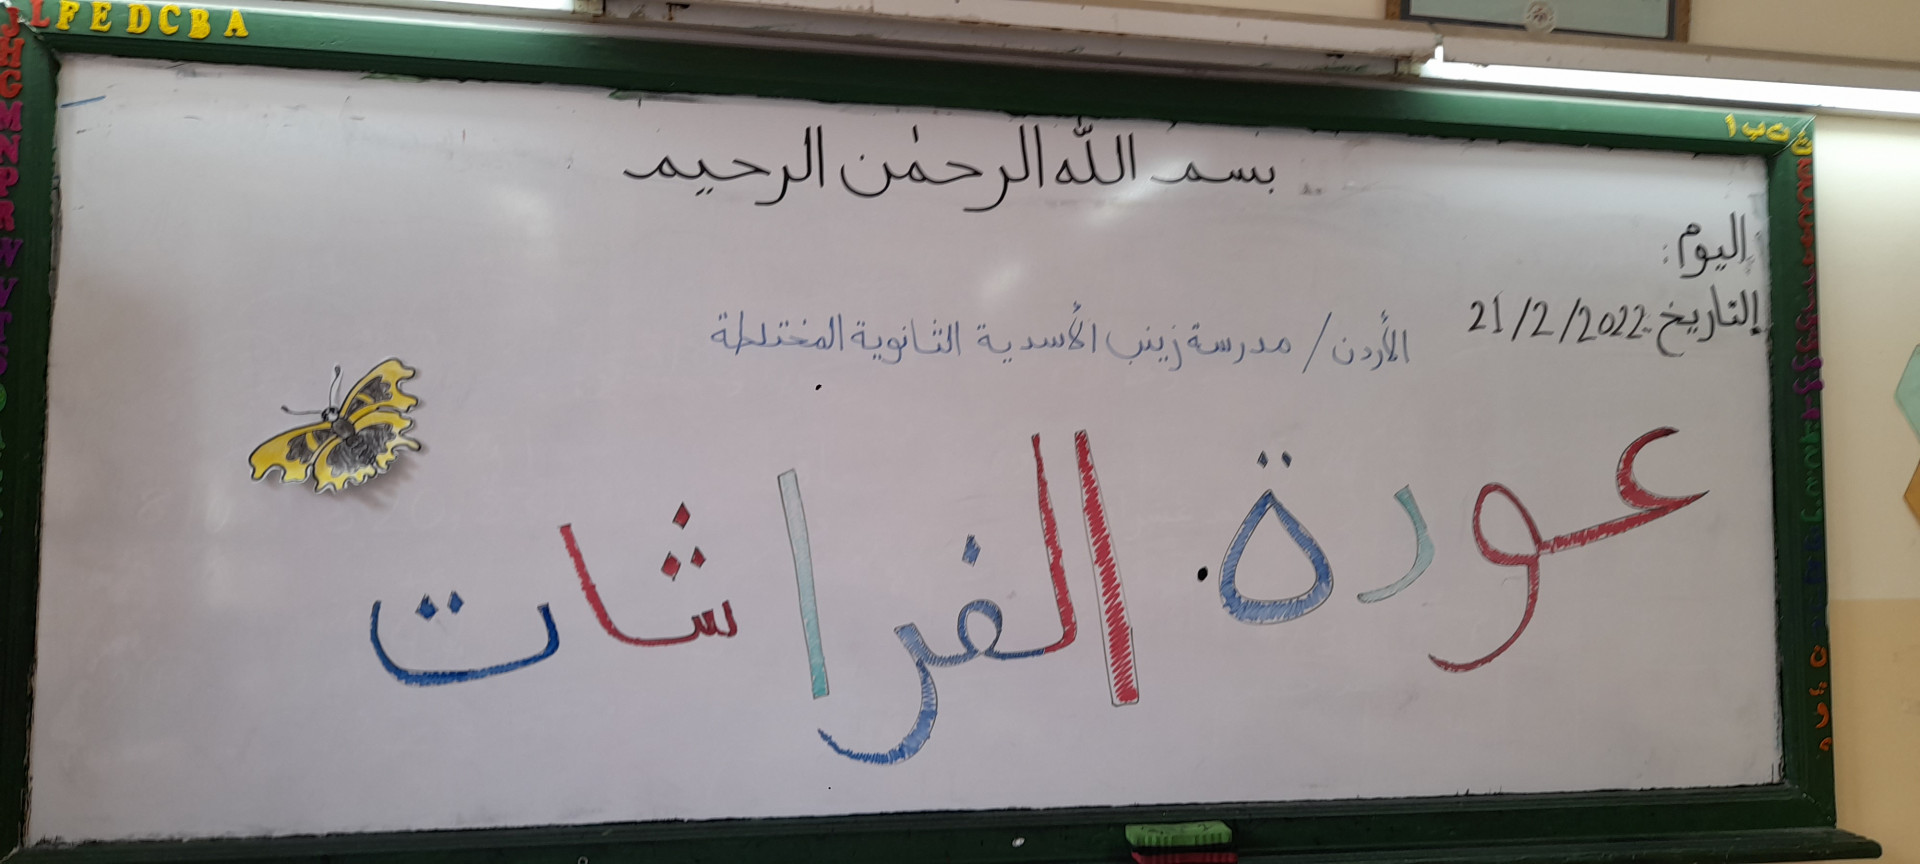 L F E D C B A
ا ب ت ث
J H G M N P R W V T
بسم الله الرحمٰن الرحيم
اليوم:
التاريخ: 21/2/2022
الأردن / مدرسة زينب الأسدية الثانوية المختلطة
عودة الفراشات